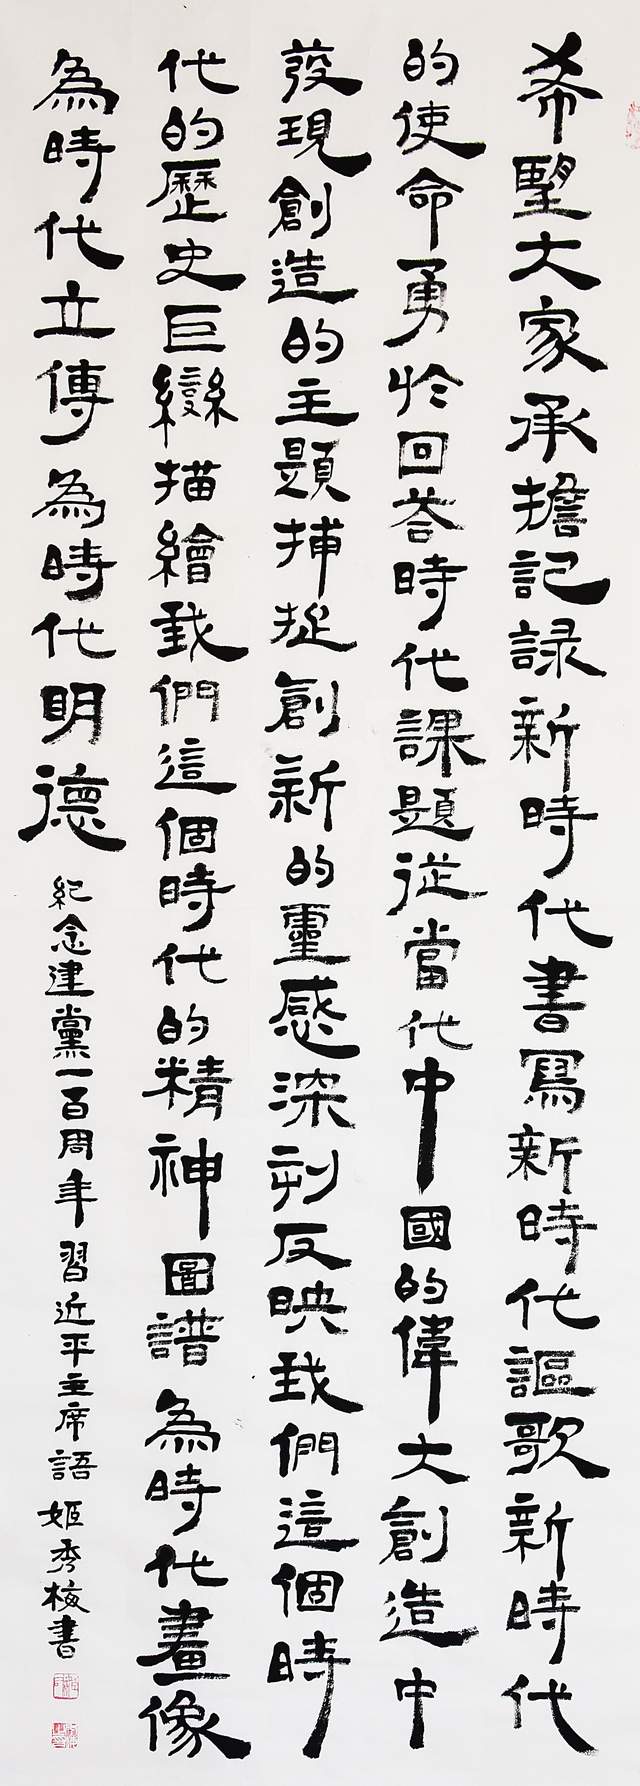 希望大家承擔記録新時代書寫新時代謳歌新時代
的使命勇於回答時代課題從當代中國的偉大創造中
發現創造的主題捕捉創新的靈感深刻反映我們這個時
代的歷史巨變描繪我們這個時代的精神圖譜為時代畫像
為時代立傳為時代明德
紀念建黨一百周年習近平主席語姬秀梅書